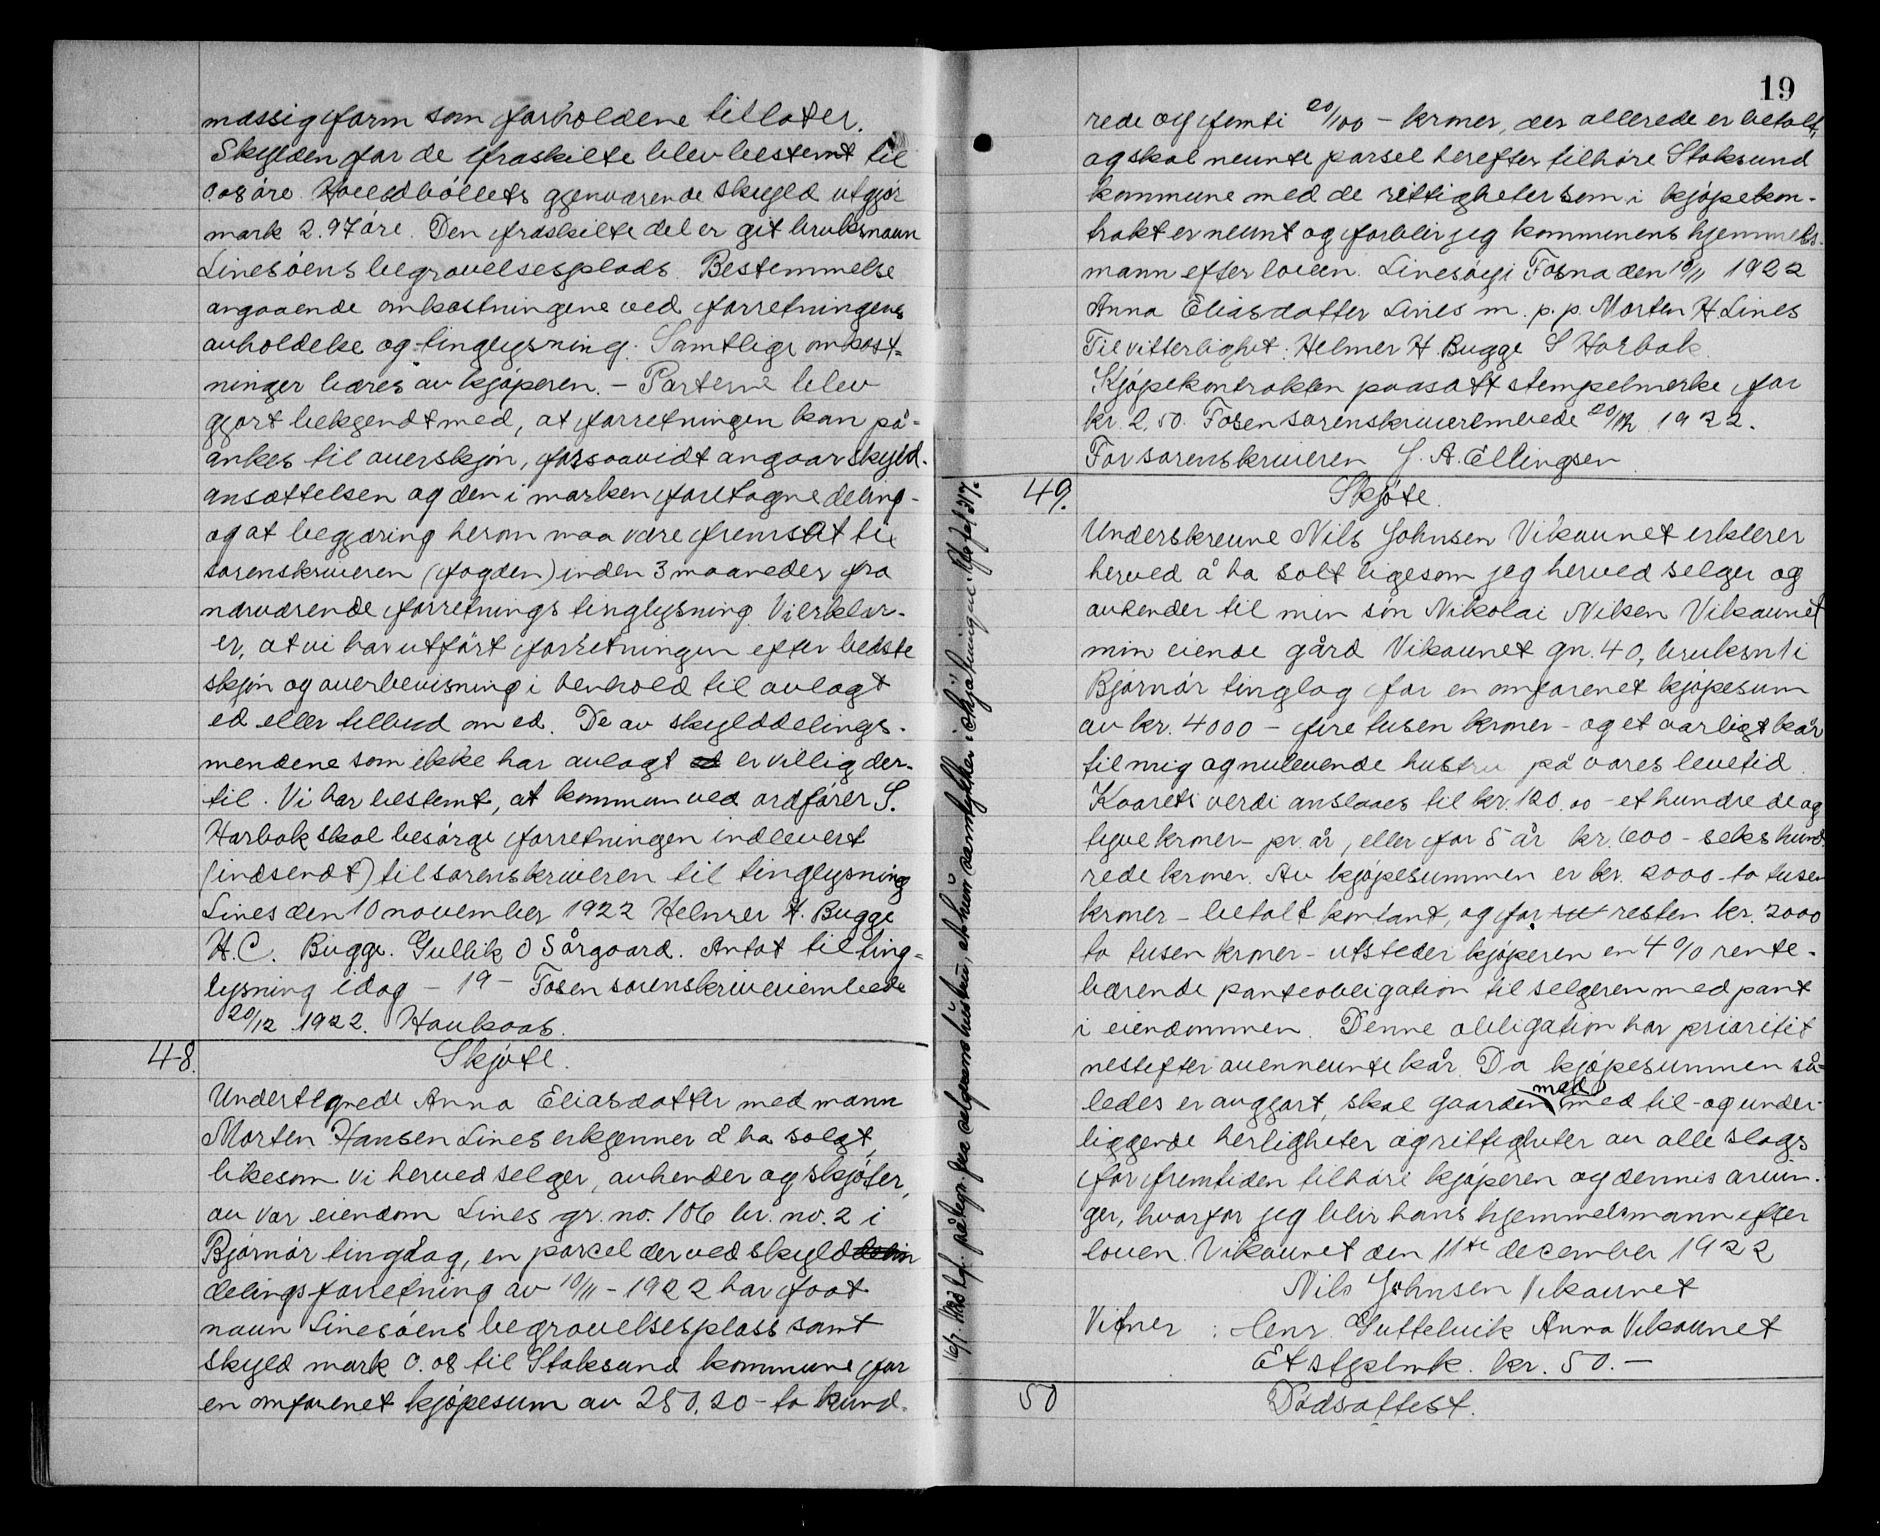 mæssig form som forholdene tillater.
Skylden for de fraskilte blev bestemt til
0.08 øre. Hovedbøllets gjenværende skyld utgjør
mark 2.97 øre. Den fraskilte del er git bruksnavn
Linesøens begravelsesplads. Bestemmelse
angaaende omkostningene ved forretningens
avholdelse og tinglysning. Samtlige omkost-
ninger bæres av kjøperen. - Parterne blev
gjort bekjendt med, at forretningen kan på-
ankes til overskjøn, forsaavidt angaar skyld-
ansættelsen og den i marken foretagne deling -
og at begjæring herom maa være fremsat til
sorenskriveren (fogden) inden 3 maaneder fra
nærværende forretnings tinglysning. Vi erklær-
er, at vi har utført forretningen efter bedste
skjøn og overbevisning i henhold til avlagt
ed eller tilbud om ed. De av skylddelings-
mendene som ikke har avlagt ed er villig der-
til. Vi har bestemt, at kommunen ved ordfører S.
Harbak skal besørge forretningen indlevert
(indsendt) til sorenskriveren til tinglysning
Lines den 10 november 1922 Helmer H. Bugge
H.C. Bugge. Gullik O Sørgaard. Antat til ting-
lysning idag - 19 - Fosen sorenskriverembede
20/12 1922. Haukaas.
48. Skjøte.
Undertegnede Anna Eliasdatter med mann
Morten Hansen Lines erkjenner å ha solgt,
likesom vi herved selger, avhender og skjøter,
av vor eiendom Lines gr. no. 106 br. no. 2 i
Bjørnør tinglag, en parcel der ved skyld
delingsforretning av 10/11 - 1922 har faat
navn Linesøens begravelsesplass samt
skyld mark 0.08 til Stoksund kommune for
en omforenet kjøpesum av 250,20 - to hund-
19
rede og femti 20/100 - kroner, der allerede er betalt,
og skal nevnte parsel herefter tilhøre Stoksund
kommune med de rettigheter som i kjøpekon-
trakt er nevnt og forblir jeg kommunens hjemmels-
mann efter loven. Linesøy i Fosna den 10/11 1922
Anna Eliasdatter Lines m. p. p. Morten H Lines
Til vitterlighet: Helmer H. Bugge S Harbak.
Kjøpekontrakten paasatt stempelmerke for
kr. 2.50. Fosen sorenskriverembede 20/12 1922.
For sorenskriveren J. A. Ellingsen
49. Skjøte.
Underskrevne Nils Johnsen Vikaunet erklerer
herved å ha solt ligesom jeg herved selger og
avhender til min søn Nikolai Nilsen Vikaunet
min eiende gård Vikaunet gn. 40, bruksnr 1 i
Bjørnør tinglag for en omforenet kjøpesum
av kr. 4000 - fire tusen kroner - og et aarligt kår
til mig og nulevende hustru på vores levetid.
Kaarets verdi anslaaes til kr. 120.00 - et hundrede og
tyve kroner - pr. år, eller for 5 år kr. 600 - seks hund-
rede kroner. Av kjøpesummen er kr. 2000 - to tusen
kroner - betalt kontant, og for resten kr. 2000
to tusen kroner - utsteder kjøperen en 4 % rente-
bærende panteobligation til selgeren med pant
i eiendommen. Denne obligation har prioritet
nestefter ovennevnte kår. Da kjøpesummen så-
ledes er avgjort, skal gaarden med med til - og under-
liggende herligheter og rettigheter av alle slags
for fremtiden tilhøre kjøperen og dennis arvin-
ger, hvorfor jeg blir hans hjemmelsmann efter
loven. Vikaunet den 11te december 1922
Nils Johnsen Vikaunet
Vitner: Henr. Guttelvik Anna Vikaunet
Et stpl.mk. kr. 50.-
50 Dødsattest.
16/7 1923 tgl. påtegn. fra selgerens hustru, at hun samtykker i skjøtningen. Afs fol 317.